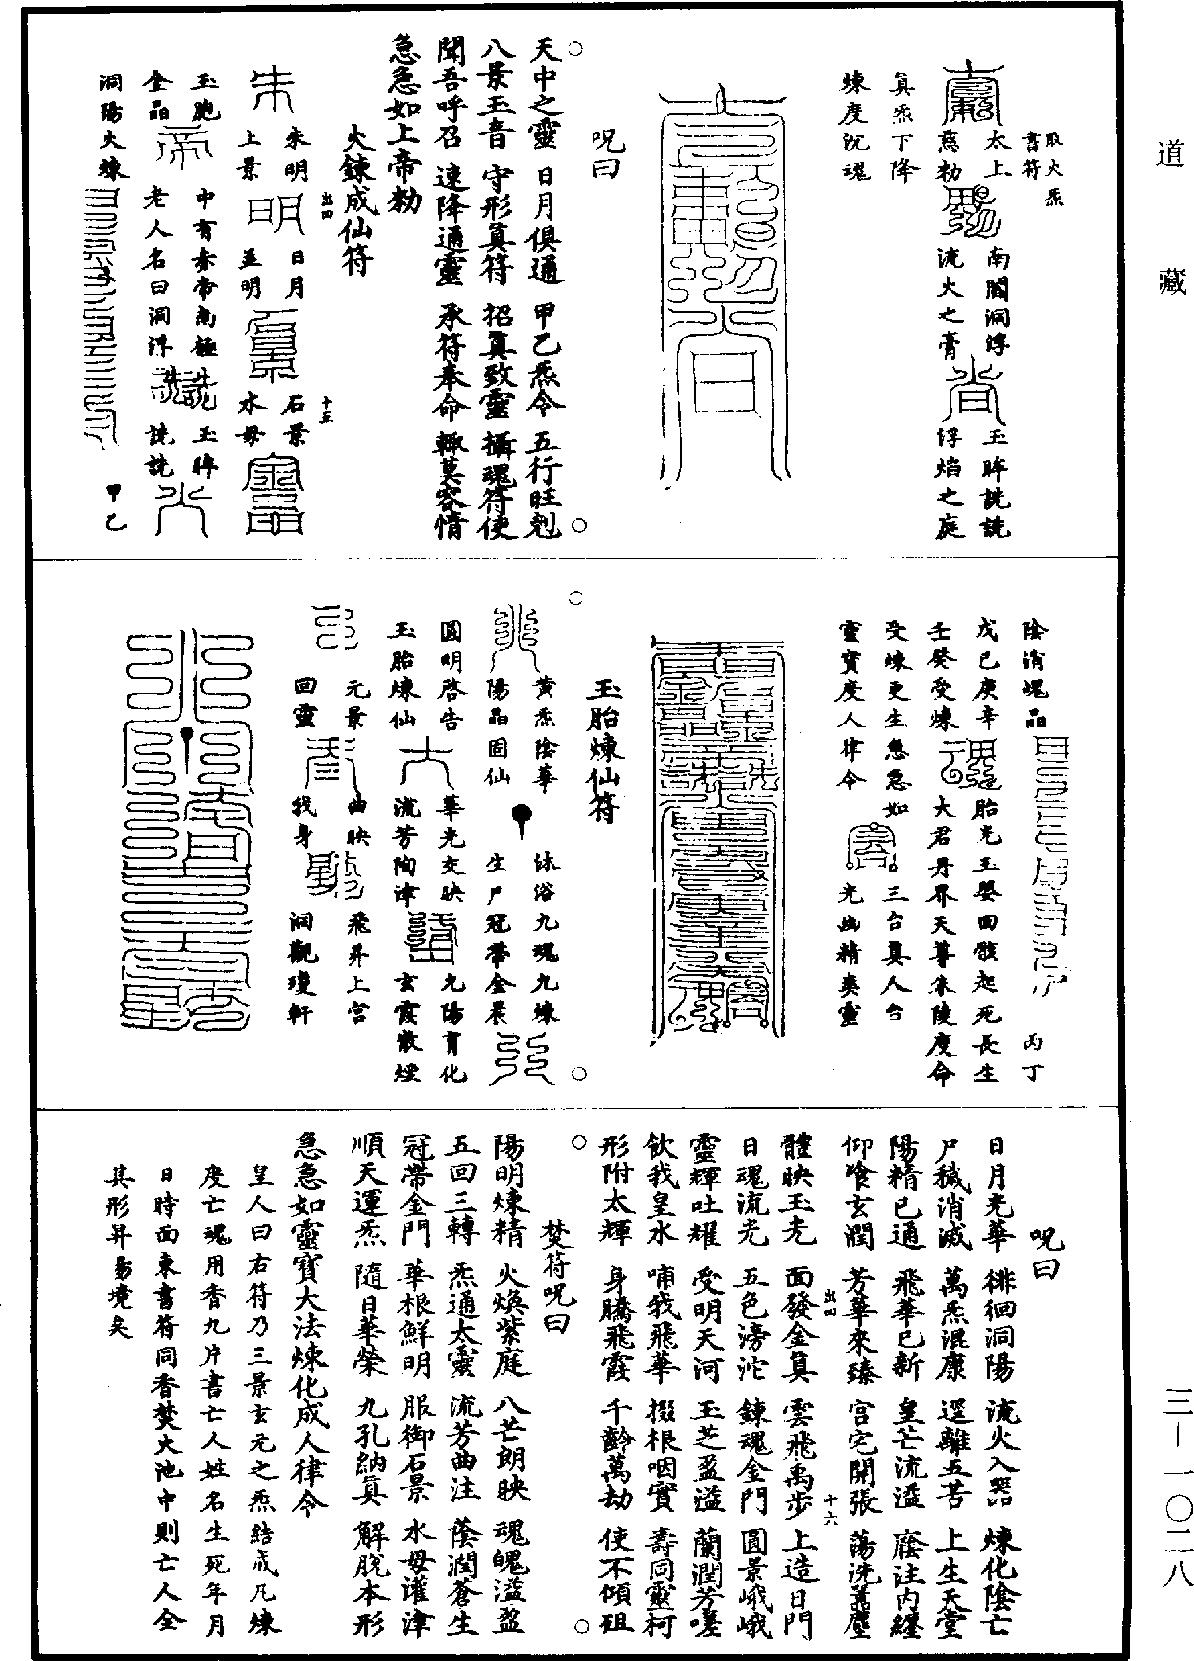 道藏
取火炁
書符
太上
慈勅
南閣洞浮
流火之膏
玉眸詵詵
浮焰之庭
真炁下降
煉度沉魂
呪曰
天中之靈 日月俱通 甲乙炁令 五行旺剋
八景玉音 守形真符 招真致靈 攝魂符使
聞吾呼召 速降通靈 承符奉命 輒莫容情
急急如上帝勅
火鍊成仙符
朱明
上景
出四
日月
並明
石景
水母
十五
玉胞
金晶
中有赤帝南極
老人名曰洞浮
玉眸
詵詵
洞陽火煉
甲乙
陰消魄晶
丙丁
戊己庚辛
胎光玉嬰回骸起死長生
壬癸受煉
大君丹界天尊朱陵度命
受煉更生急急如
三台真人合
靈寶度人律令
光幽精爽靈
玉胎煉仙符
黃炁陰華
陽晶固仙
沐浴九魂九煉
生尸冠帶金晨
圓明啓告
玉胎煉仙
華光交映
流芳陶津
九陽育化
玄霞散煙
元景
回靈
曲映
我身
飛昇上宮
洞觀瓊軒
呪曰
日月光華 徘徊洞陽 流火入器 煉化陰亡
尸穢消滅 萬炁混康 逕離五苦 上生天堂
陽精已通 飛華已新 皇芒流溢 蔭注內纏
仰飡玄潤 芳華來臻 宮宅開張 蕩洗舊塵
出四
十六
體映玉光 面發金真 雲飛禹步 上造日門
日魂流光 五色滂沱 鍊魂金門 圓景峨峨
靈輝吐耀 受明天河 玉芝盈溢 蘭潤芳嗟
飲我皇水 哺我飛華 掇根咽實 壽同靈柯
形附太輝 身騰飛霞 千齡萬劫 使不傾徂
焚符呪曰
陽明煉精 火煥紫庭 八芒朗映 魂魄溢盈
五回三轉 炁通太靈 流芳曲注 蔭潤蒼生
冠帶金門 華根鮮明 服御石景 水母灌津
順天運炁 隨日華榮 九孔納真 解脫本形
急急如靈寶大法煉化成人律令
皇人曰右符乃三景玄元之炁結成凡煉
度亡魂用香九片書亡人姓名生死年月
日時面東書符同香焚火池中則亡人全
其形昇昜境矣
三—一〇二八